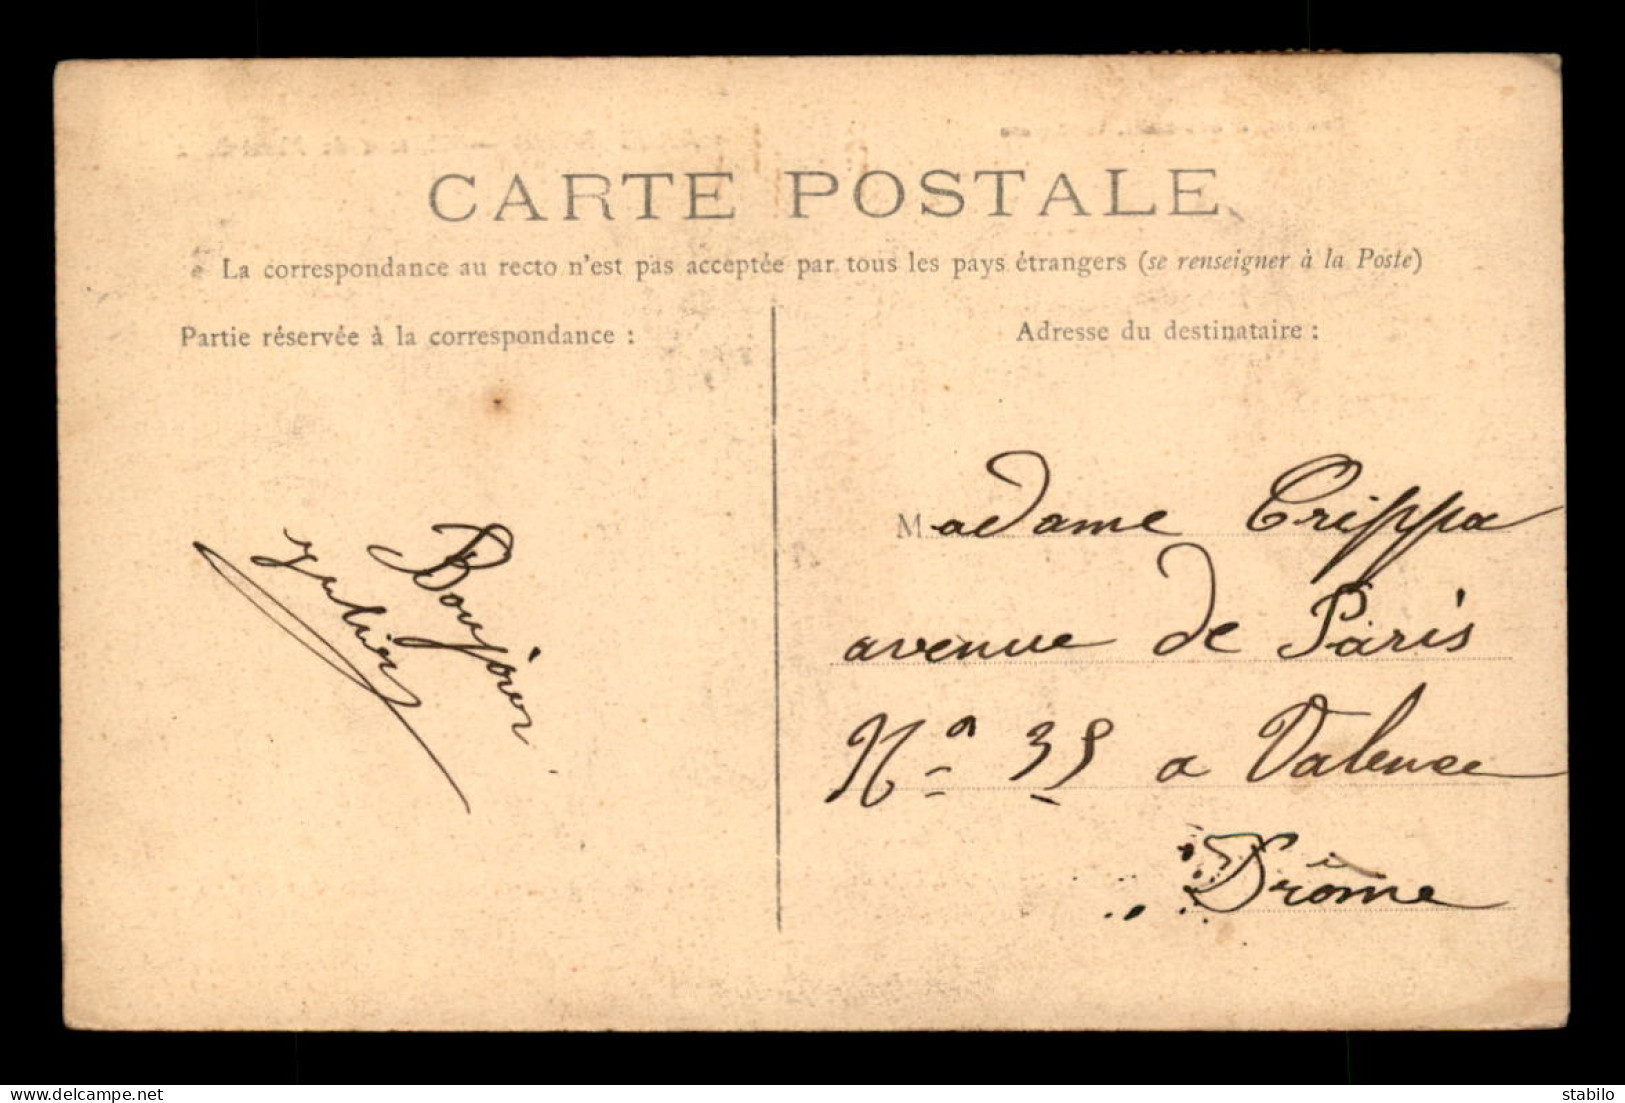 CARTE POSTALE
La correspondance au recto n'est pas acceptée par tous les pays étrangers (se renseigner à la Poste)
Partie réservée à la correspondance :
Adresse du destinataire :
Bonjour
Madame Crippa
avenue de Paris
No 35 a Valence
Drôme
stabilo